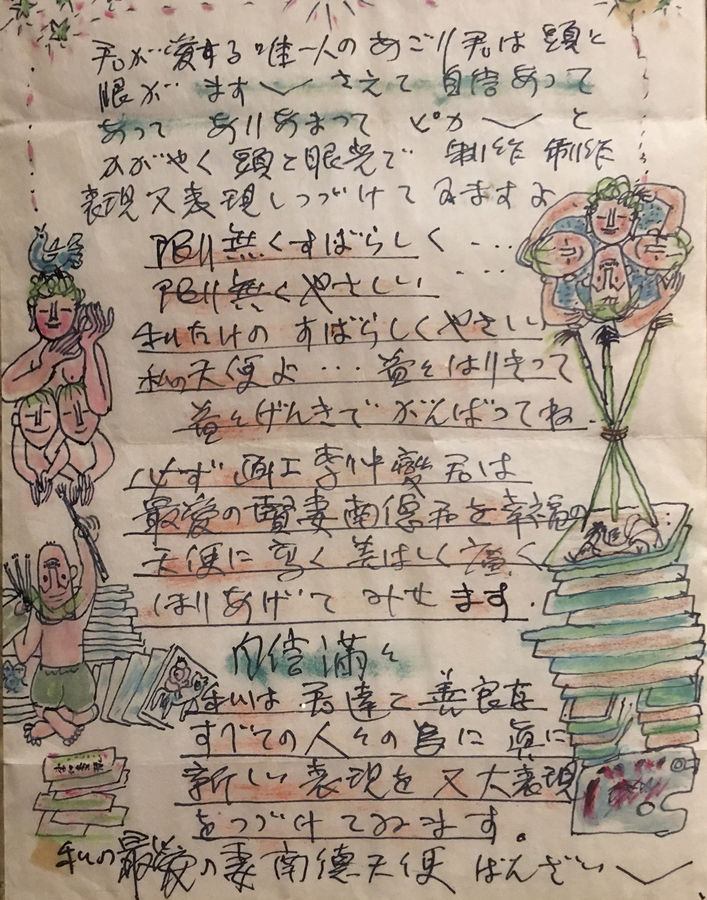 君が愛する唯一人のあごり君は頭と
眼がます〳〵さえて自信あって
あって ありあまって ピカ〳〵と
かがやく頭と眼光で 制作 制作
表現又表現しつづけてみますよ
限り無くすばらしく・・・
限り無くやさしい・・・
私だけのすばらしくやさしい
私の天使よ・・・益々はりきって
益々げんきでがんばってね.
必ず画工李仲燮君は
最愛の賢妻南徳君を幸福の
天使に高く美ばしく廣く
ほりあげてみせます.
自信満々
私は君達と善良な
すべての人々の為に真に
新しい表現を又大表現
をつづけてみます。
私の最愛の妻南徳天使ばんざい〳〵